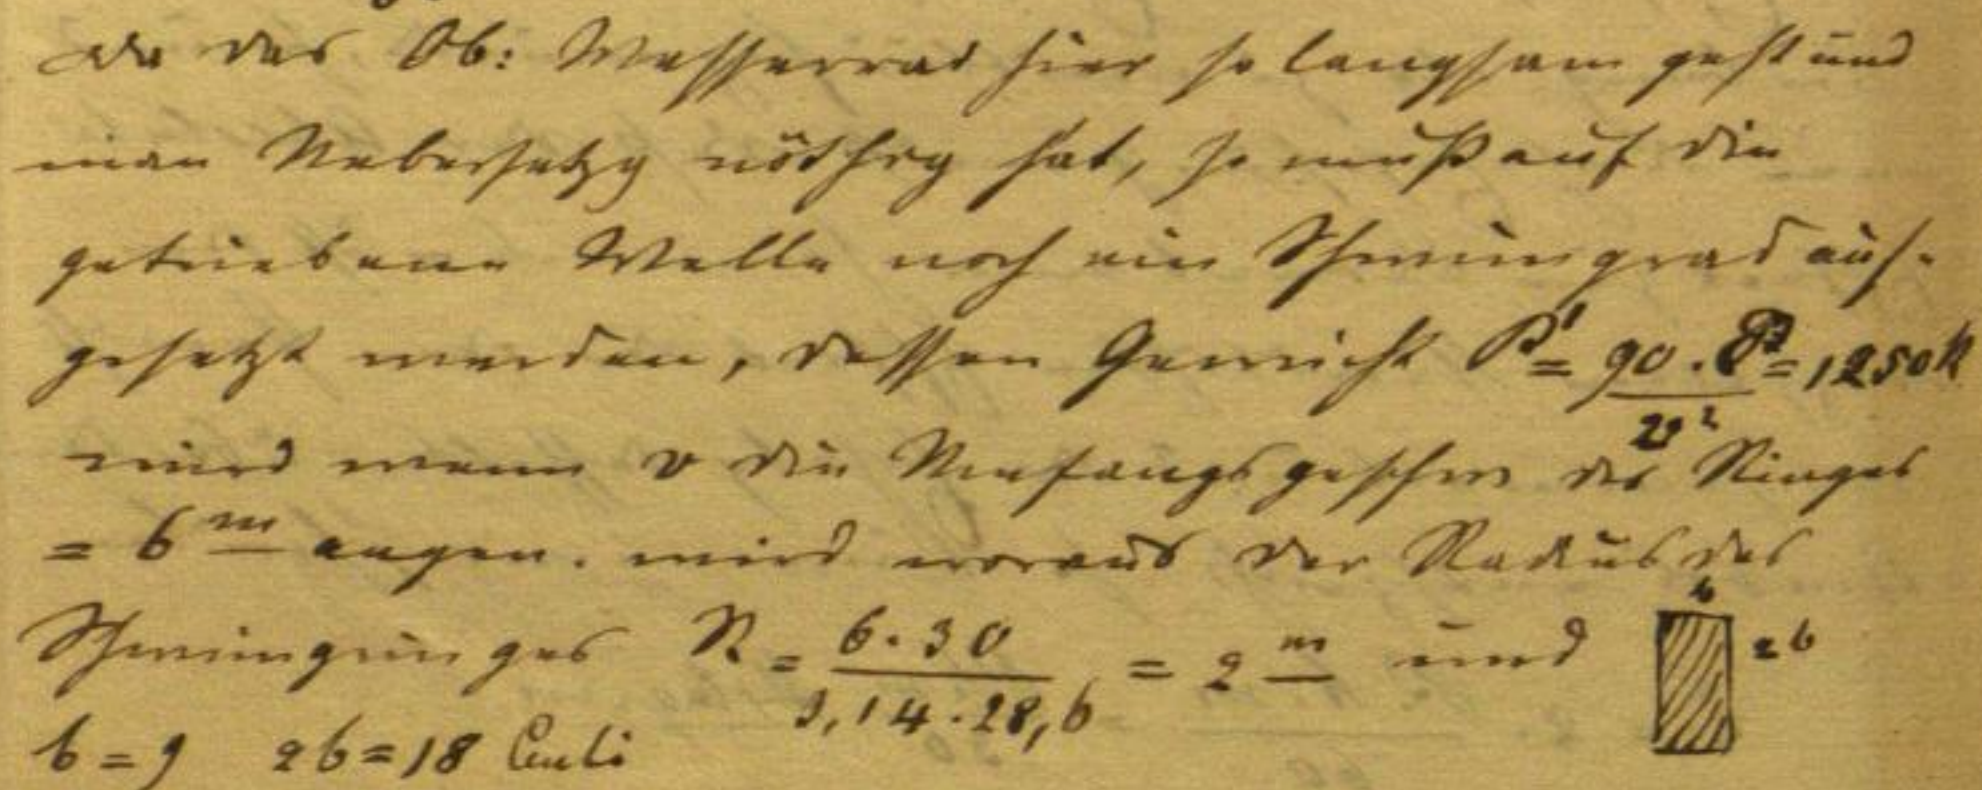 Da das Ob: Wasserrad hier so langsam geht und
man Uebersetzg nöthig hat, so muß auf die
getriebene Welle noch ein Schwungrad auf-
gesetzt werden, dessen Gewicht P' = 90 . / v² = 1250 k
wird wenn v die Umfangsgeschw des Ringes
= 6 m angen. wird woraus der Radius des
Schwungringes R = 6.30 / 3,14.28,6 = 2 m und b 2b
b = 9 2b = 18 Centi